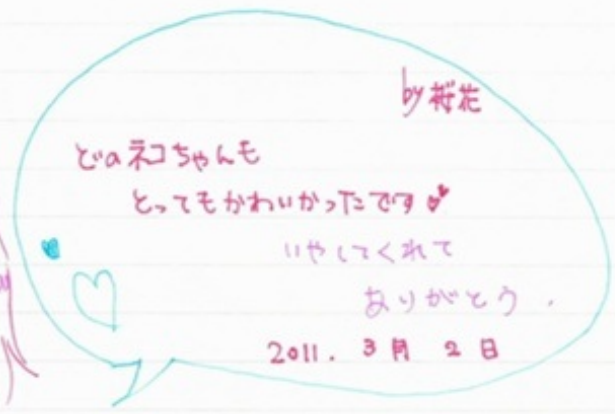 by 桜花
どのネコちゃんも
とってもかわいかったです
いやしてくれて
ありがとう.
2011. 3月 2日